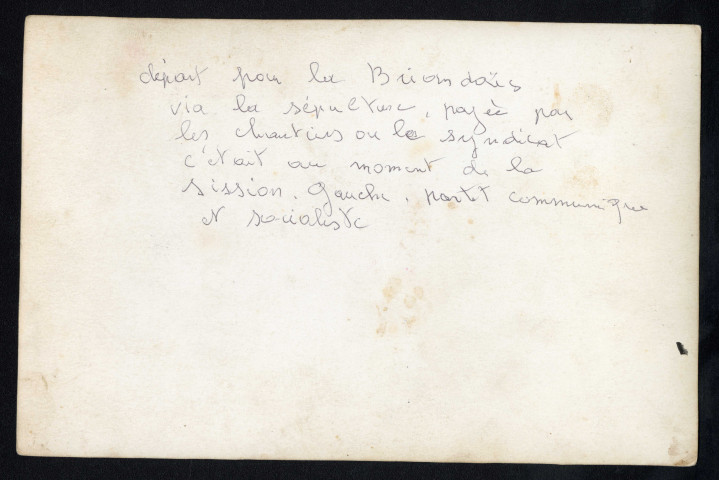 départ pour la Briandais
via la sépulture, payée par
les chantiers ou le syndicat
c'était au moment de la
sission. Gauche, parti communique
et socialiste